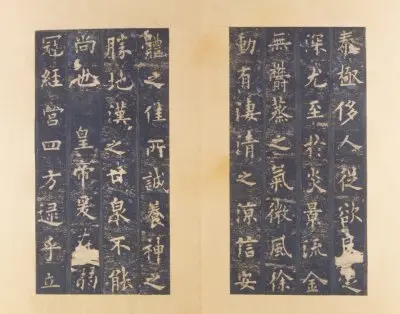 泰極侈人從欲良足
深尤至於炎景流金
無鬱蒸之氣微風徐
動有淒清之涼信安
體之佳所誠養神之
勝地漢之甘泉不能
尚也 皇帝爰在弱
冠經營四方逮乎立